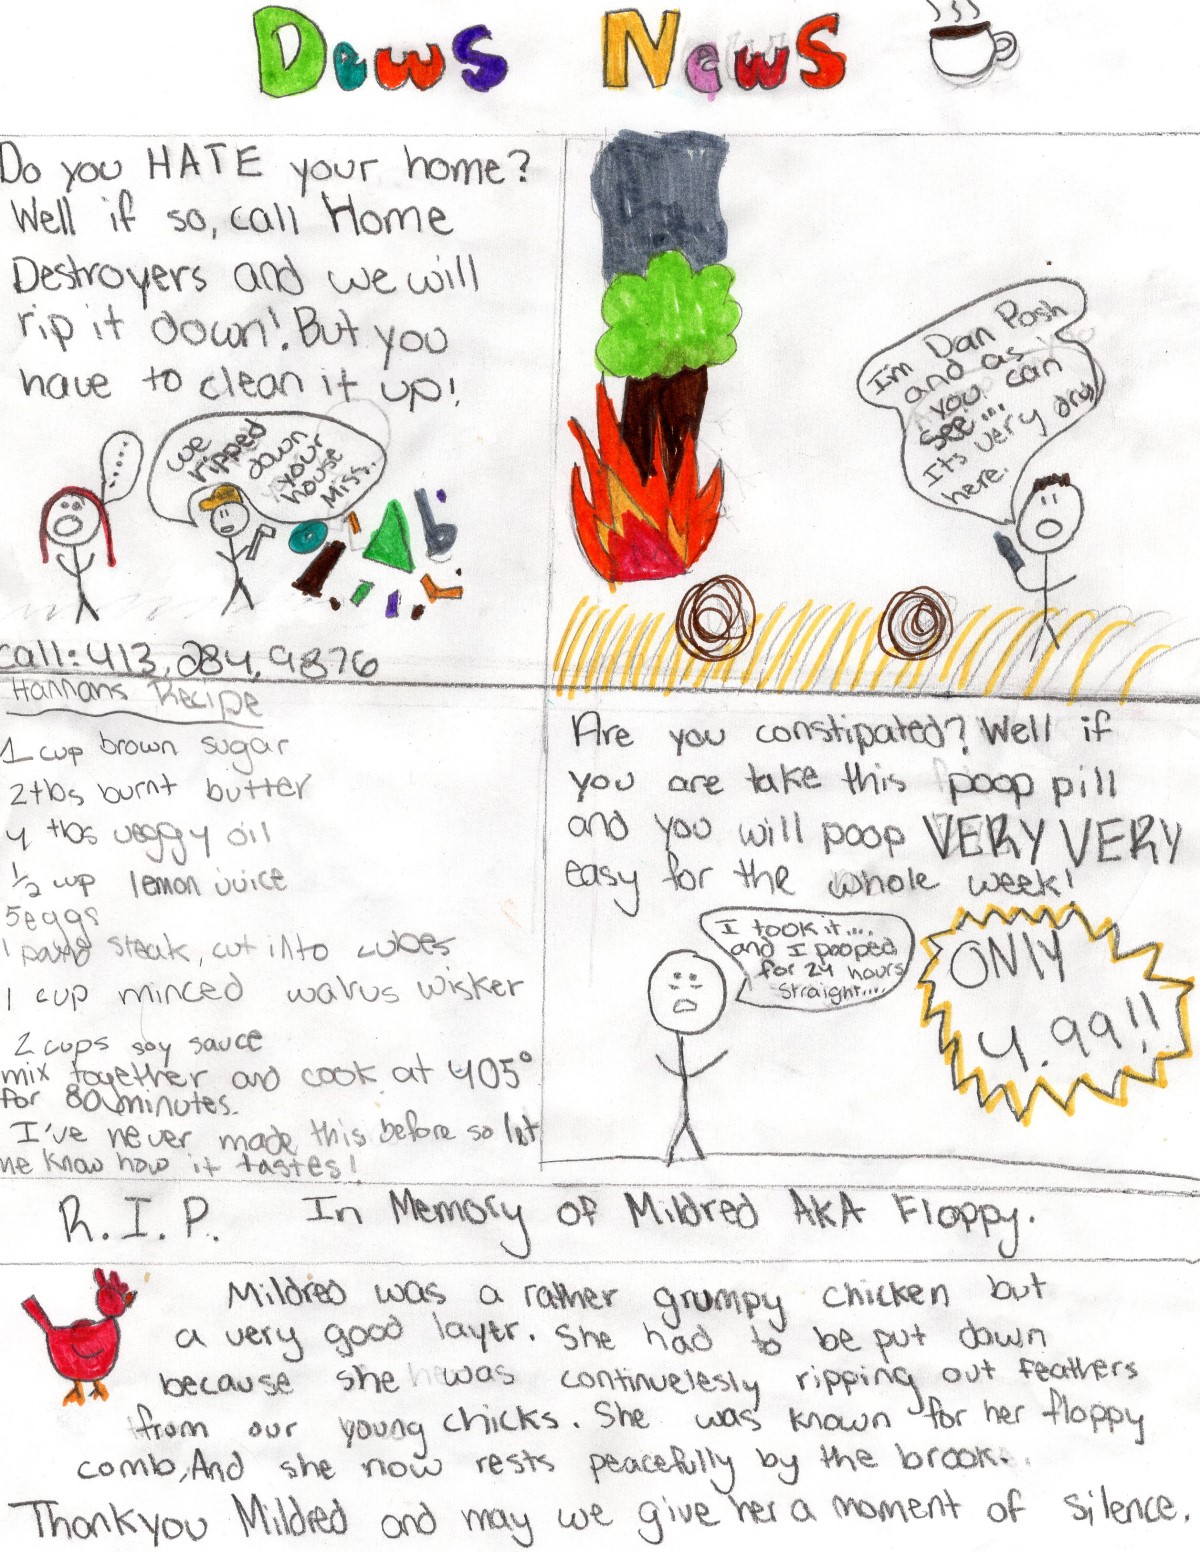 Dews News
Do you HATE your home?
Well if so, call Home
Destroyers and we will
rip it down! But you
have to clean it up!
.....
we
ripped
down
your
house
Miss.
call: 413, 284, 9876
I'm Dan Posh
and as
you can
see...
Its very dry
here.
Hannans Recipe
1 cup brown sugar
2 tbs burnt butter
4 tbs veggy oil
1/2 cup lemon juice
5 eggs
1 pound steak, cut into cubes
1 cup minced walrus wisker
2 cups soy sauce
mix together and cook at 405°
for 80 minutes.
I've never made this before so let
me know how it tastes!
Are you constipated? Well if
you are take this poop pill
and you will poop VERY VERY
easy for the whole week!
I took it....
and I pooped
for 24 hours
straight....
ONLY
4.99!!
R.I.P. In Memory of Mildred AKA Floppy.
Mildred was a rather grumpy chicken but
a very good layer. She had to be put down
because she was continuelesly ripping out feathers
from our young chicks. She was known for her floppy
comb, And she now rests peacefully by the brook.
Thankyou Mildred and may we give her a moment of silence.